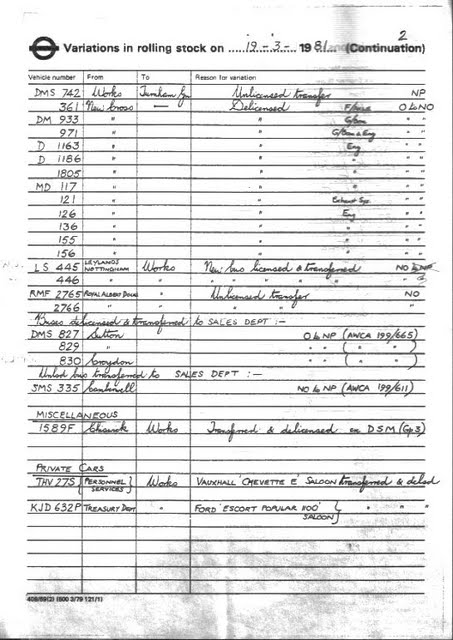 2
Variations in rolling stock on 19-3- 1981 (Continuation)
Vehicle number From To Reason for variation
DMS 742 Works Turnham Gn Unlicensed transfer NP
361 New Cross — Delicensed O to NO
DM 933 " " G/box " "
971 " " G/box & Eng " "
D 1163 " " Eng " "
D 1186 " " " " "
1805 " " " " "
MD 117 " " " " "
121 " " Exhaust Sys. " "
126 " " Eng " "
136 " " " " "
155 " " " " "
156 " " " " "
LS 445 LEYLANDS NOTTINGHAM Works New bus licensed & transferred NO to
446 " " " " " "
RMF 2765 ROYAL ALBERT DOCKS " Unlicensed transfer NO
2766 " " " " "
Buses delicensed & transferred to SALES DEPT :-
DMS 827 Sutton O to NP (AWCA 199/665)
829 " " " ( " " )
830 Croydon " " ( " " )
Unlcd bus transferred to SALES DEPT :-
SMS 335 Camberwell NO to NP (AWCA 199/611)
MISCELLANEOUS
1589F Chiswick Works Transferred & delicensed ex DSM (Gp3)
PRIVATE CARS
THV 27S (PERSONNEL SERVICES) Works VAUXHALL 'CHEVETTE E' SALOON transferred & delcd
KJD 632P TREASURY DEPT " FORD 'ESCORT POPULAR 1100' SALOON } " " "